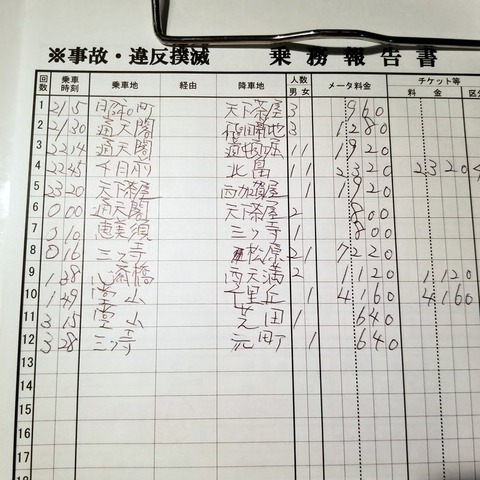 ※事故・違反撲滅 乗務報告書
回数 乗車時刻 乗車地 経由 降車地 人数 男 女 メータ料金 チケット等 料金 区分
1 21 15 日本町 天下茶屋 3 960
2 21 30 通天閣 3 1280
3 22 14 通天閣 道頓堀 1 1 1920
4 22 45 千日前 北畠 1 1 2320 2320
5 23 20 天下茶屋 西加賀屋 1 1920
6 0 00 通天閣 天下茶屋 2 800
7 0 10 恵美須 三ツ寺 1 800
8 0 16 三ツ寺 松原 2 1 7220
9 1 38 心斎橋 西天満 2 1120 1120
10 1 49 堂山 千里丘 1 4160 4160
11 3 15 堂山 芝田 1 640
12 3 28 三ツ寺 元町 1 640
13
14
15
16
17
18